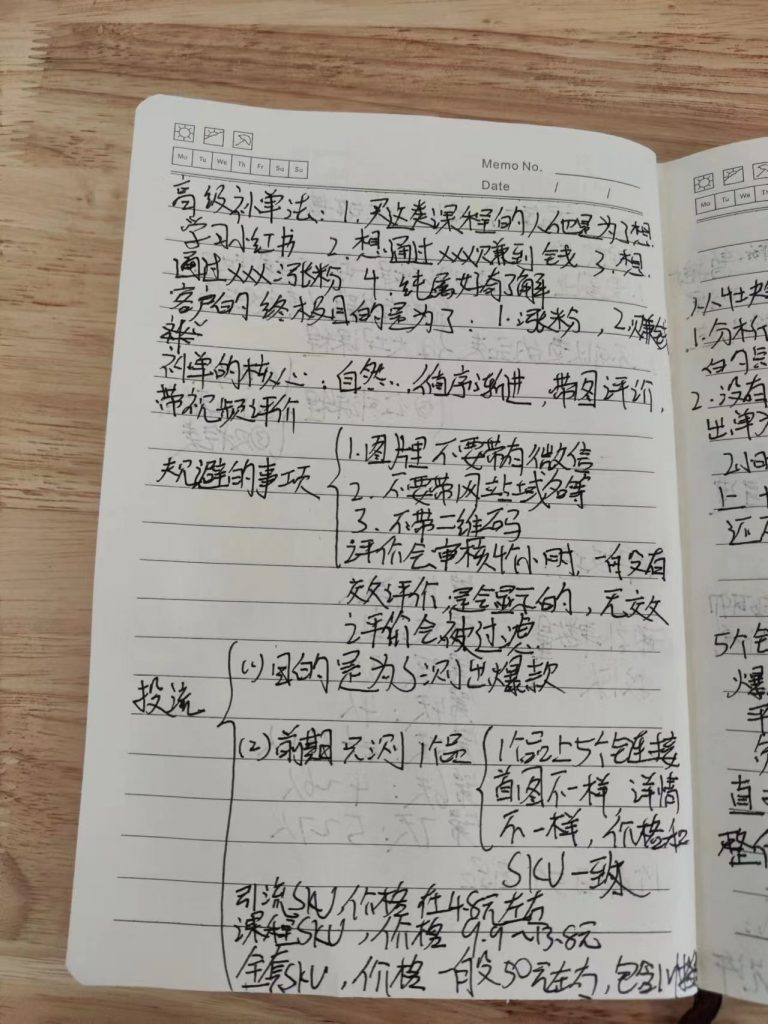 Mo Tu We Th Fr Sa Su
Memo No.
Date / /
高级补单法：1. 买这类课程的人他是为了想
学习小红书 2. 想通过xxx赚到钱 3. 想
通过xxx涨粉 4. 纯属好奇了解
客户的终极目的是为了：1. 涨粉，2. 赚钱
补单的核心：自然..，循序渐进，带图评价，
带视频评价
规避的事项
1. 图片里不要带有微信
2. 不要带网站域名等
3. 不带二维码
评价会审核4个小时，一般没有
效评价，是会显示的，无效
评价会被过滤
投流
(1) 目的是为了测出爆款
(2) 前期只测1个品
1个品上5个链接
首图不一样 详情
不一样，价格和
SKU一致
引流SKU，价格在4.8元左右
课程SKU，价格9.9～13.8元
全套SKU，价格一般50元左右，包含
Mo Tu We Th
1. 分析
2. 没有
出单
5个
爆
整个